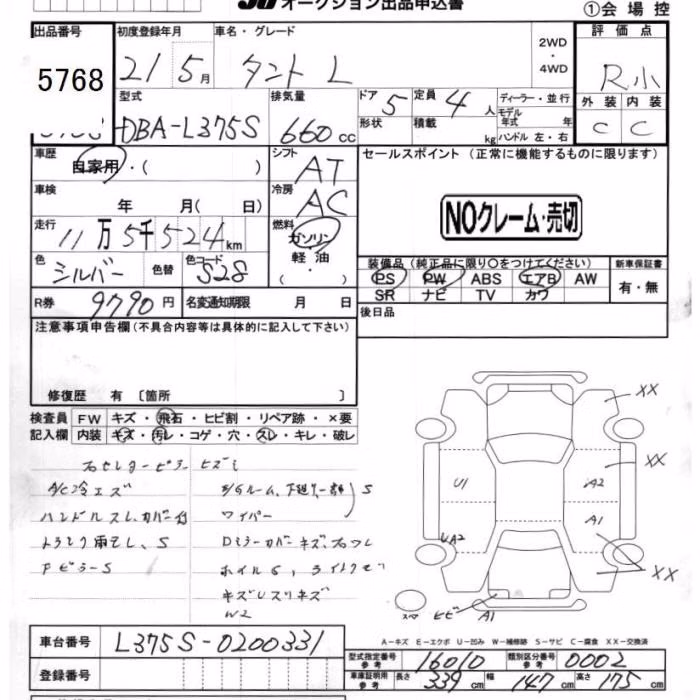 オークション出品申込書
①会場控
出品番号 初度登録年月 車名・グレード 2WD・4WD 評価点
5768 21年5月 タント L R小
型式 排気量 ドア 定員 ディーラー・並行 外装 内装
DBA-L375S 660cc 5 4人 モデル年式 年 C C
形状 積載 kg ハンドル 左・右
車歴 自家用・( ) シフト AT セールスポイント (正常に機能するものに限ります)
車検 年 月( 日) 冷房 AC
NOクレーム・売切
走行 11万5千524km 燃料 ガソリン 軽油・( )
色 シルバー 色替 色コード S28 装備品(純正品に限り〇をつけてください) 新車保証書
PS PW ABS エアB AW 有・無
SR ナビ TV カワ
R券 9790円 名変通知期限 月 日 後日品
注意事項申告欄(不具合内容等は具体的に記入して下さい)
修復歴 有 〔箇所 〕
検査員 FW キズ・飛石・ヒビ割・リペア跡・×要
記入欄 内装 キズ・汚レ・コゲ・穴・スレ・キレ・破レ
右センターピラー ヒズミ
A/C冷エズ
ハンドルスレ、カバー付
ワイパー
Dミラーカバーキズ、
Pピラー S
キズ
W2
XX
U1 A2 XX
A1
UA2
XX
スペア ヒビ A1
A-キズ E-エクボ U-凹み W-補修跡 S-サビ C-腐食 XX-交換済
車台番号 L375S-0200331
型式指定番号 参考 16010 類別区分番号 参考 0002
登録番号 車庫証明用 参考 長さ 339cm 幅 147cm 高さ 175cm